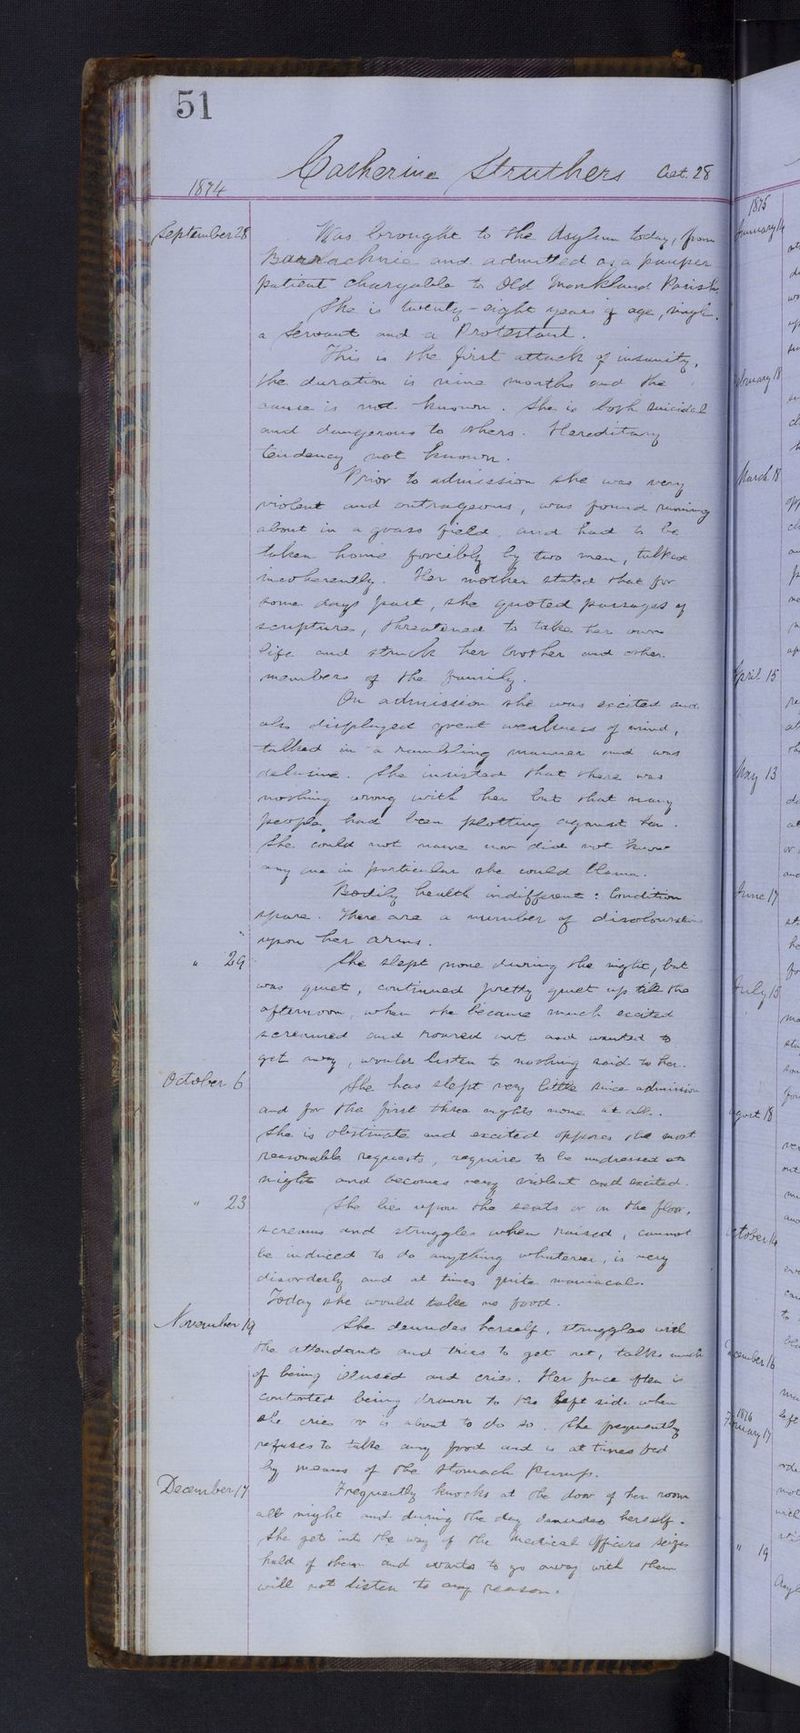 51
Catherine Struthers Aet. 28
1874
September 28 Was brought to the Asylum today, from
Barrachnie and admitted as a pauper
patient chargable to Old Monkland Parish.
She is twenty-eight years of age, single,
a Servant and a Protestant.
This is the first attack of insanity,
the duration is nine months and the
cause is not known. She is both suicidal
and dangerous to others. Hereditary
tendency not known.
Prior to admission she was very
violent and outrageous, was found running
about in a grass field, and had to be
taken home forcibly by two men, talked
incoherently. Her mother stated that for
some days past, she quoted passages of
scripture, threatened to take her own
life and struck her brother and other
members of the family.
On admission she was excited and
also displayed great weakness of mind,
talked in a rambling manner and was
delusive. She insisted that there was
nothing wrong with her but that many
people had been plotting against her.
She could not name nor did not know
any one in particular she could blame.
Bodily health indifferent: Condition
spare. There are a number of discolourations
upon her arms.
" 29 She slept none during the night, but
was quiet, continued pretty quiet up till the
afternoon, when she became much excited
screamed and roared out and wanted to
get away, would listen to nothing said to her.
October 6 She has slept very little since admission
and for the first three nights none at all.
She is obstinate and excited opposes the most
reasonable requests, require to be undressed at
night and becomes very violent and excited.
" 23 She lies upon the seats or on the floor,
screams and struggles when raised, cannot
be induced to do anything whatever, is very
disorderly and at times quite maniacal.
Today she would take no food.
November 19 She denudes herself, struggles with
the attendants and tries to get out, talks much
of being illused and cries. Her face often is
contorted being drawn to the left side when
she cries or is about to do so. She frequently
refuses to take any food and is at times fed
by means of the stomach pump.
December 17 Frequently knocks at the door of her room
all night and during the day denudes herself.
She gets into the way of the Medical Officers seizes
hold of them and wants to go away with them
will not listen to any reason.
1875
January 14
February 18
March 18
April 15
May 13
June 17
July 15
August 18
October 14
December 16
1876
February 17
" 19